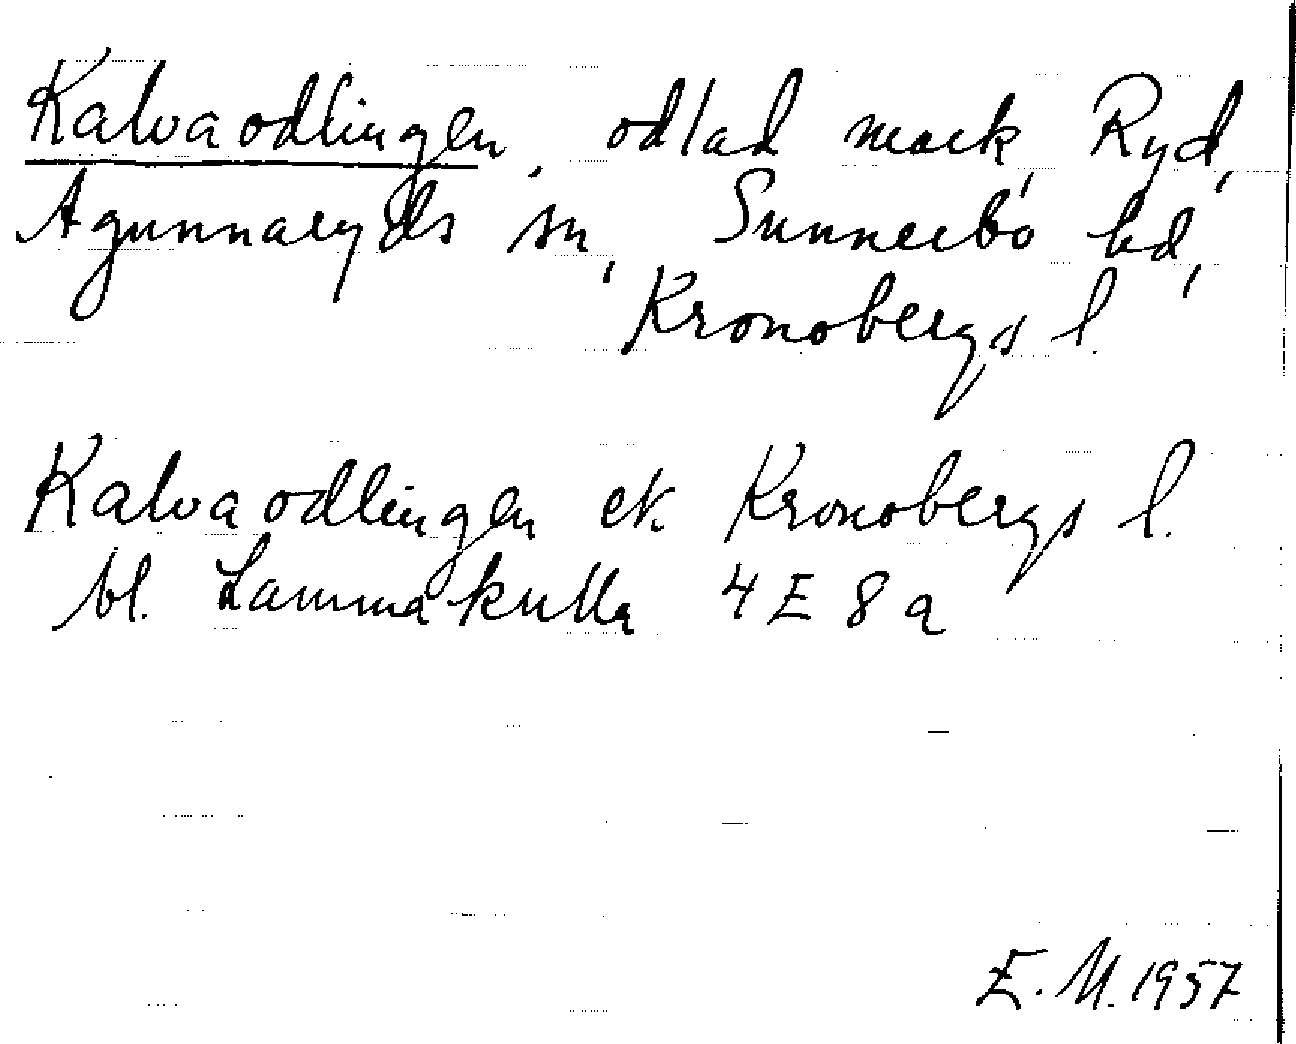 Kalvaodlingen, odlad mark, Ryd,
Agunnaryds sn, Sunnerbo hd,
Kronobergs l.
Kalvaodlingen ek. Kronobergs l.
bl. Lammakulla 4 E 8 a
E. M. 1957